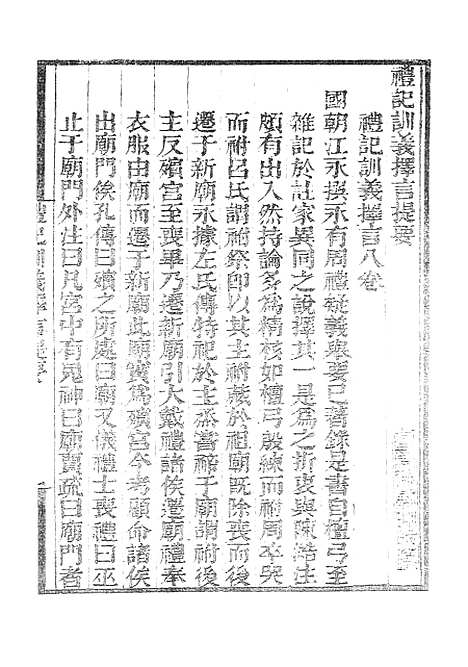 禮記訓義擇言提要
禮記訓義擇言八卷
國朝江永撰永有周禮疑義舉要已著錄是書自檀弓至
雜記於註家異同之說擇其一是爲之折衷與陳澔注
頗有出入然持論多爲精核如檀弓殷練而祔周卒哭
而祔呂氏謂祔祭卽以其主祔藏於祖廟既除喪而後
遷于新廟永據左氏傳特祀於主烝嘗禘于廟謂祔後
主反殯宮至喪畢乃遷新廟引大戴禮諸侯遷廟禮奉
衣服由廟而遷于新廟此廟實爲殯宮今考顧命諸侯
出廟門俟孔傳曰殯之所處曰廟又儀禮士喪禮曰巫
止于廟門外注曰凡宮中有鬼神曰廟賈疏曰廟門者